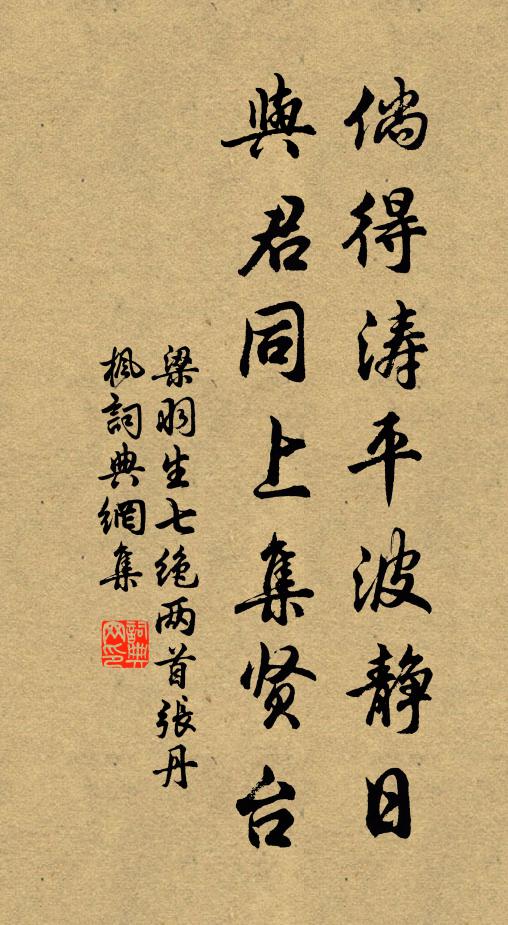 倘得涛平波静日
與君同上集贤台
梁羽生七绝两首張丹
楓詞典網集
詞典
网印